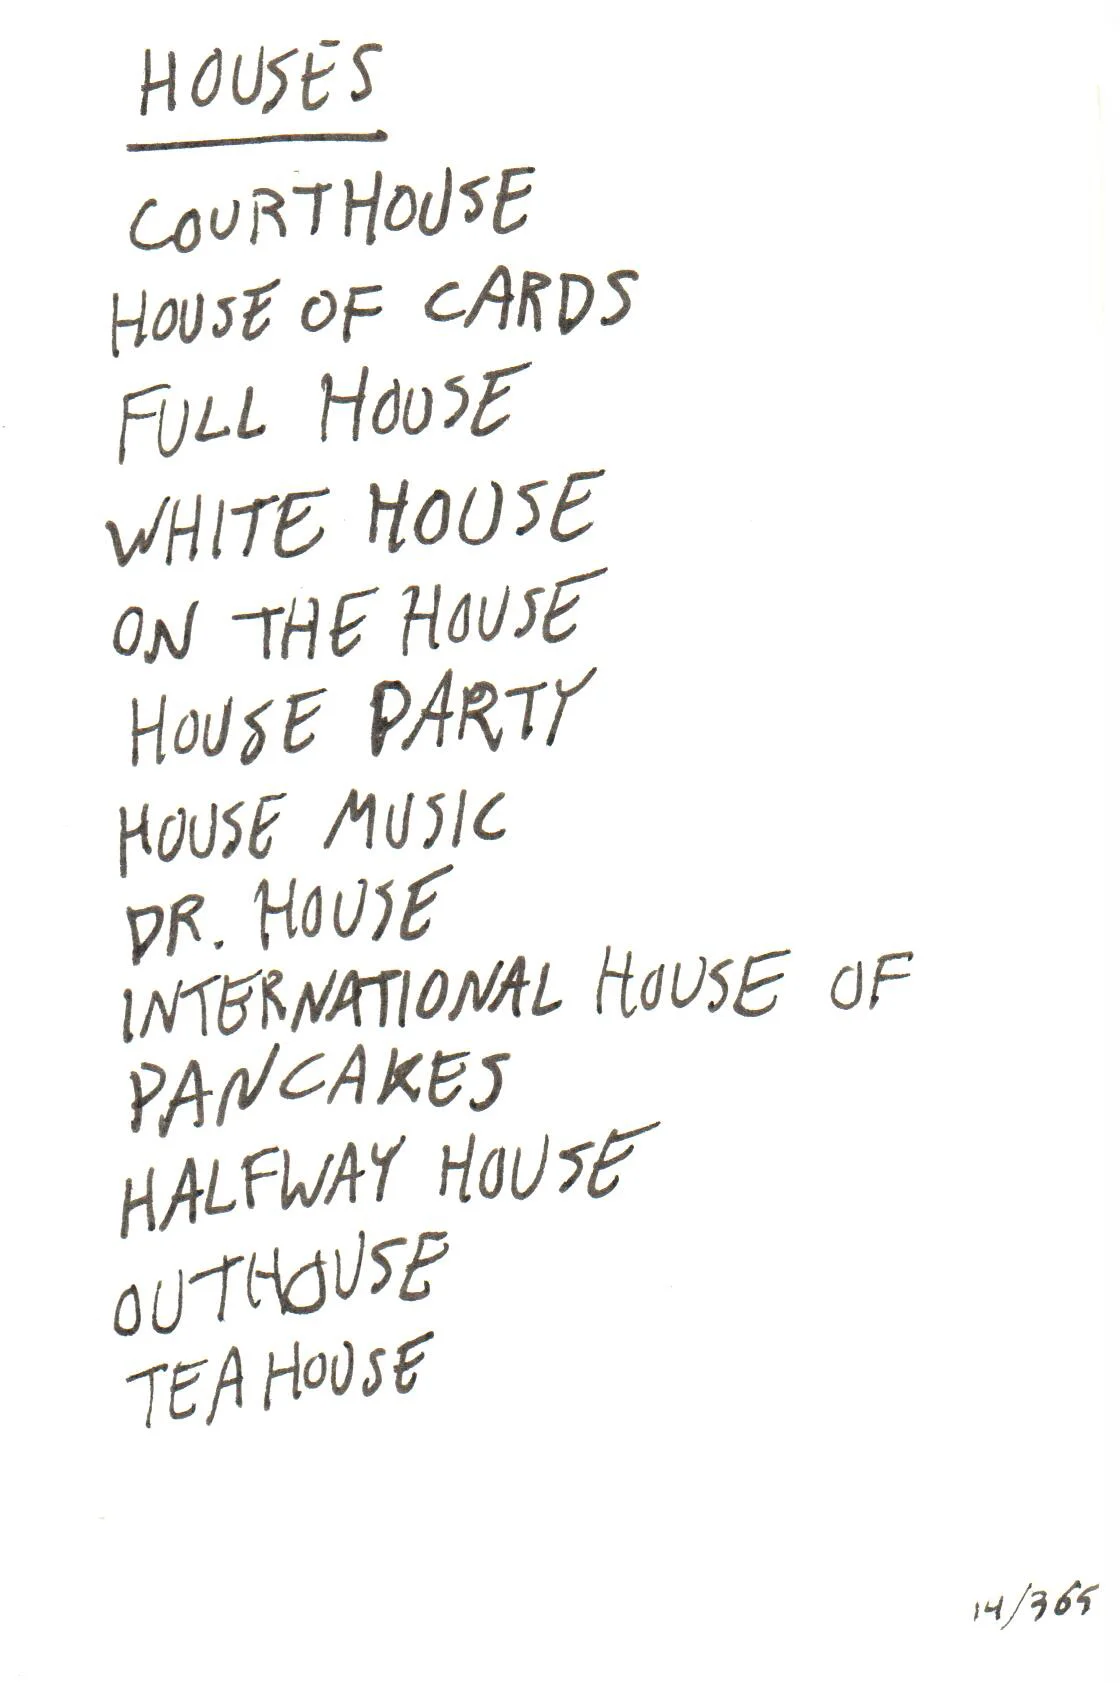 HOUSES
COURTHOUSE
HOUSE OF CARDS
FULL HOUSE
WHITE HOUSE
ON THE HOUSE
HOUSE PARTY
HOUSE MUSIC
DR. HOUSE
INTERNATIONAL HOUSE OF
PANCAKES
HALFWAY HOUSE
OUTHOUSE
TEAHOUSE
14/365